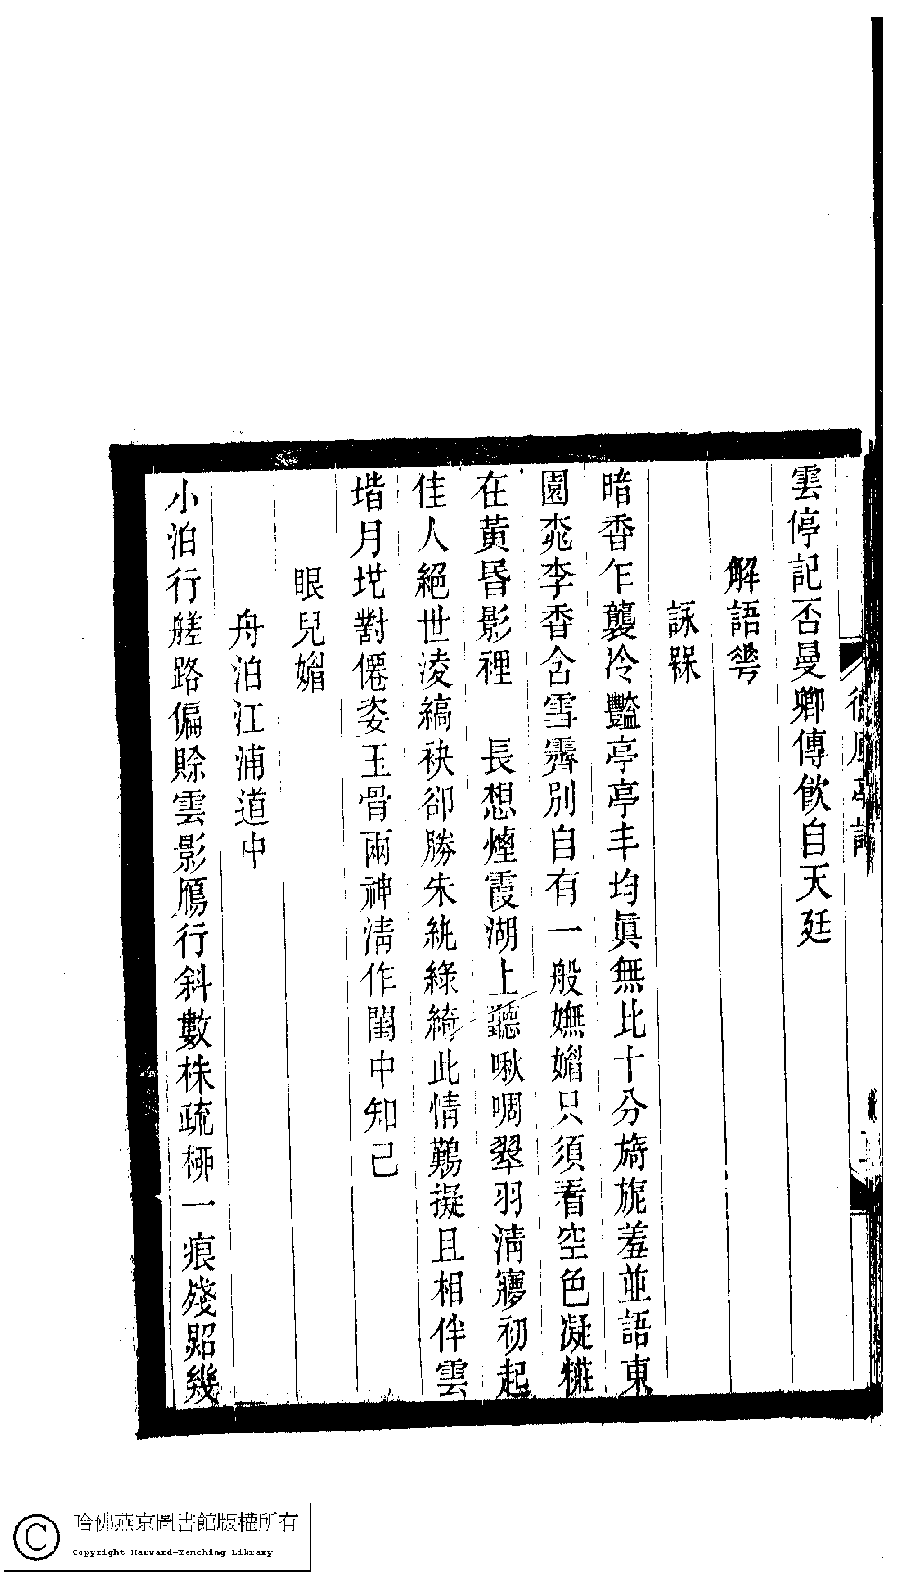 雲停記否曼卿傳飲自天廷
解語蕚
詠槑
暗香乍襲冷豔亭亭丰均眞無比十分旖旎羞並語東
園兖李香含雪霽別自有一般嫵媚只須看空色凝糚
在黃昏影裡　長想煙霞湖上聽啾啁翠羽清㝱初起
佳人絕世淩縞袂卻勝朱紈綠綺此情鷄擬且相伴雲
堦月墄對僊姿玉骨雨神清作閨中知己
眼兒媚
舟泊江浦道中
小泊行艖路偏賖雲影鴈行斜數株疏栁一痕殘照幾
哈佛燕京圖書館版權所有
Copyright Harvard-Yenching Library